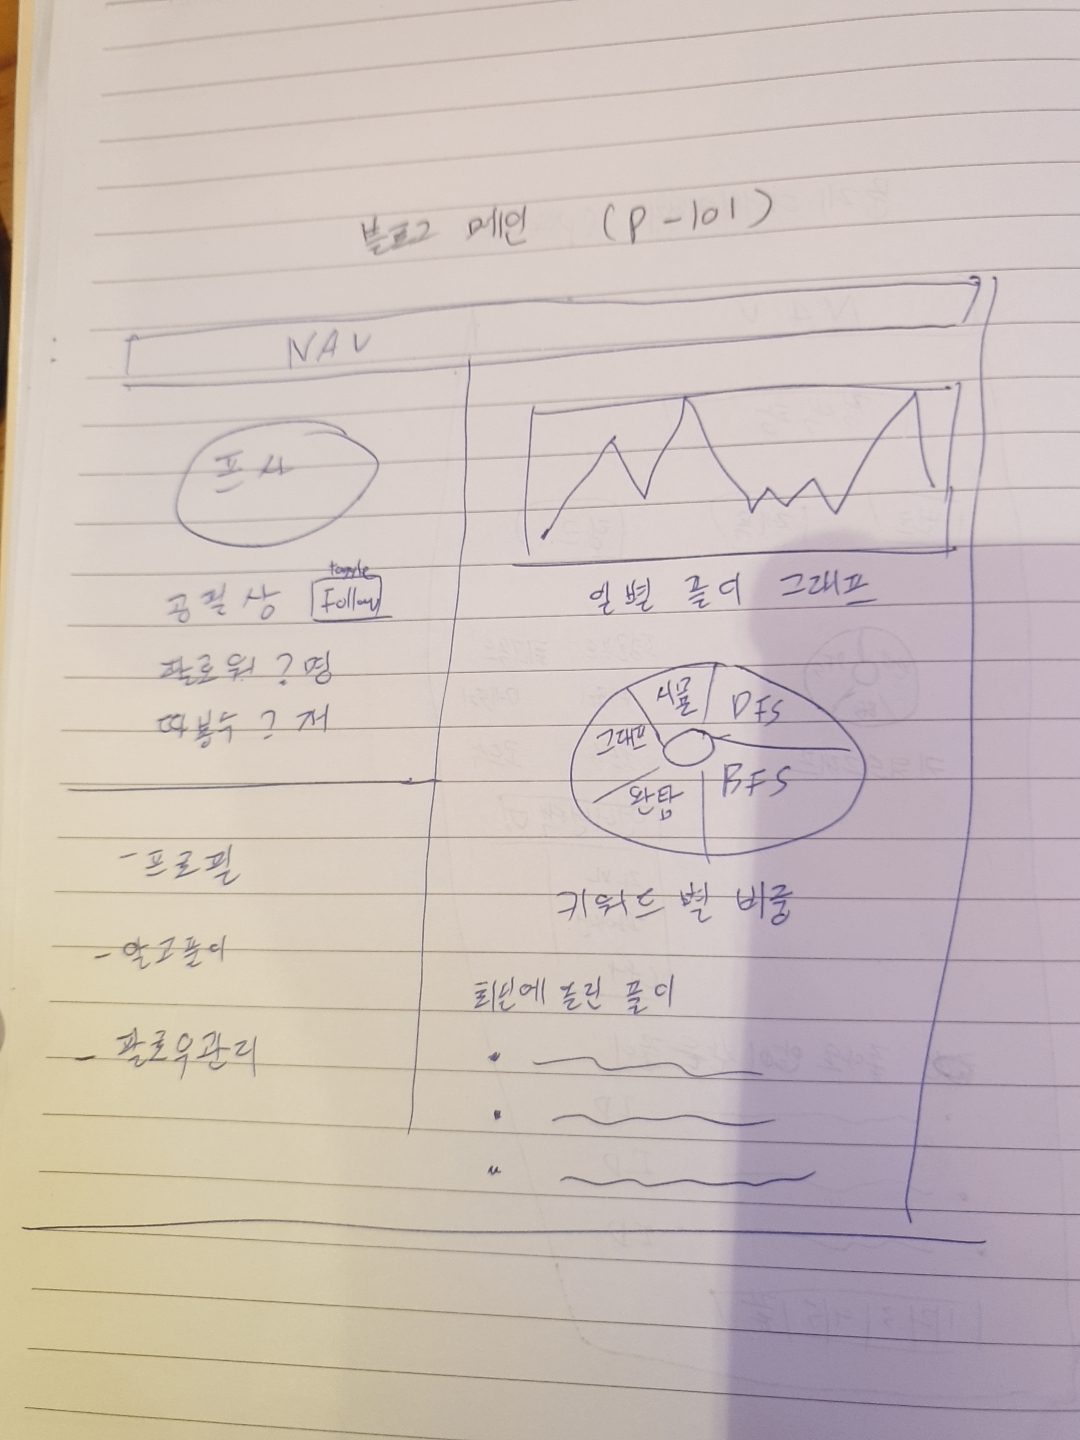 블로그 메인 (P-101)
NAV
프사
toggle
공필상 Follow
팔로워 ? 명
따봉수 ? 개
- 프로필
- 알고풀이
- 팔로우관리
일별 풀이 그래프
시뮬
DFS
그래프
완탐
BFS
키워드 별 비중
최신에 올린 풀이